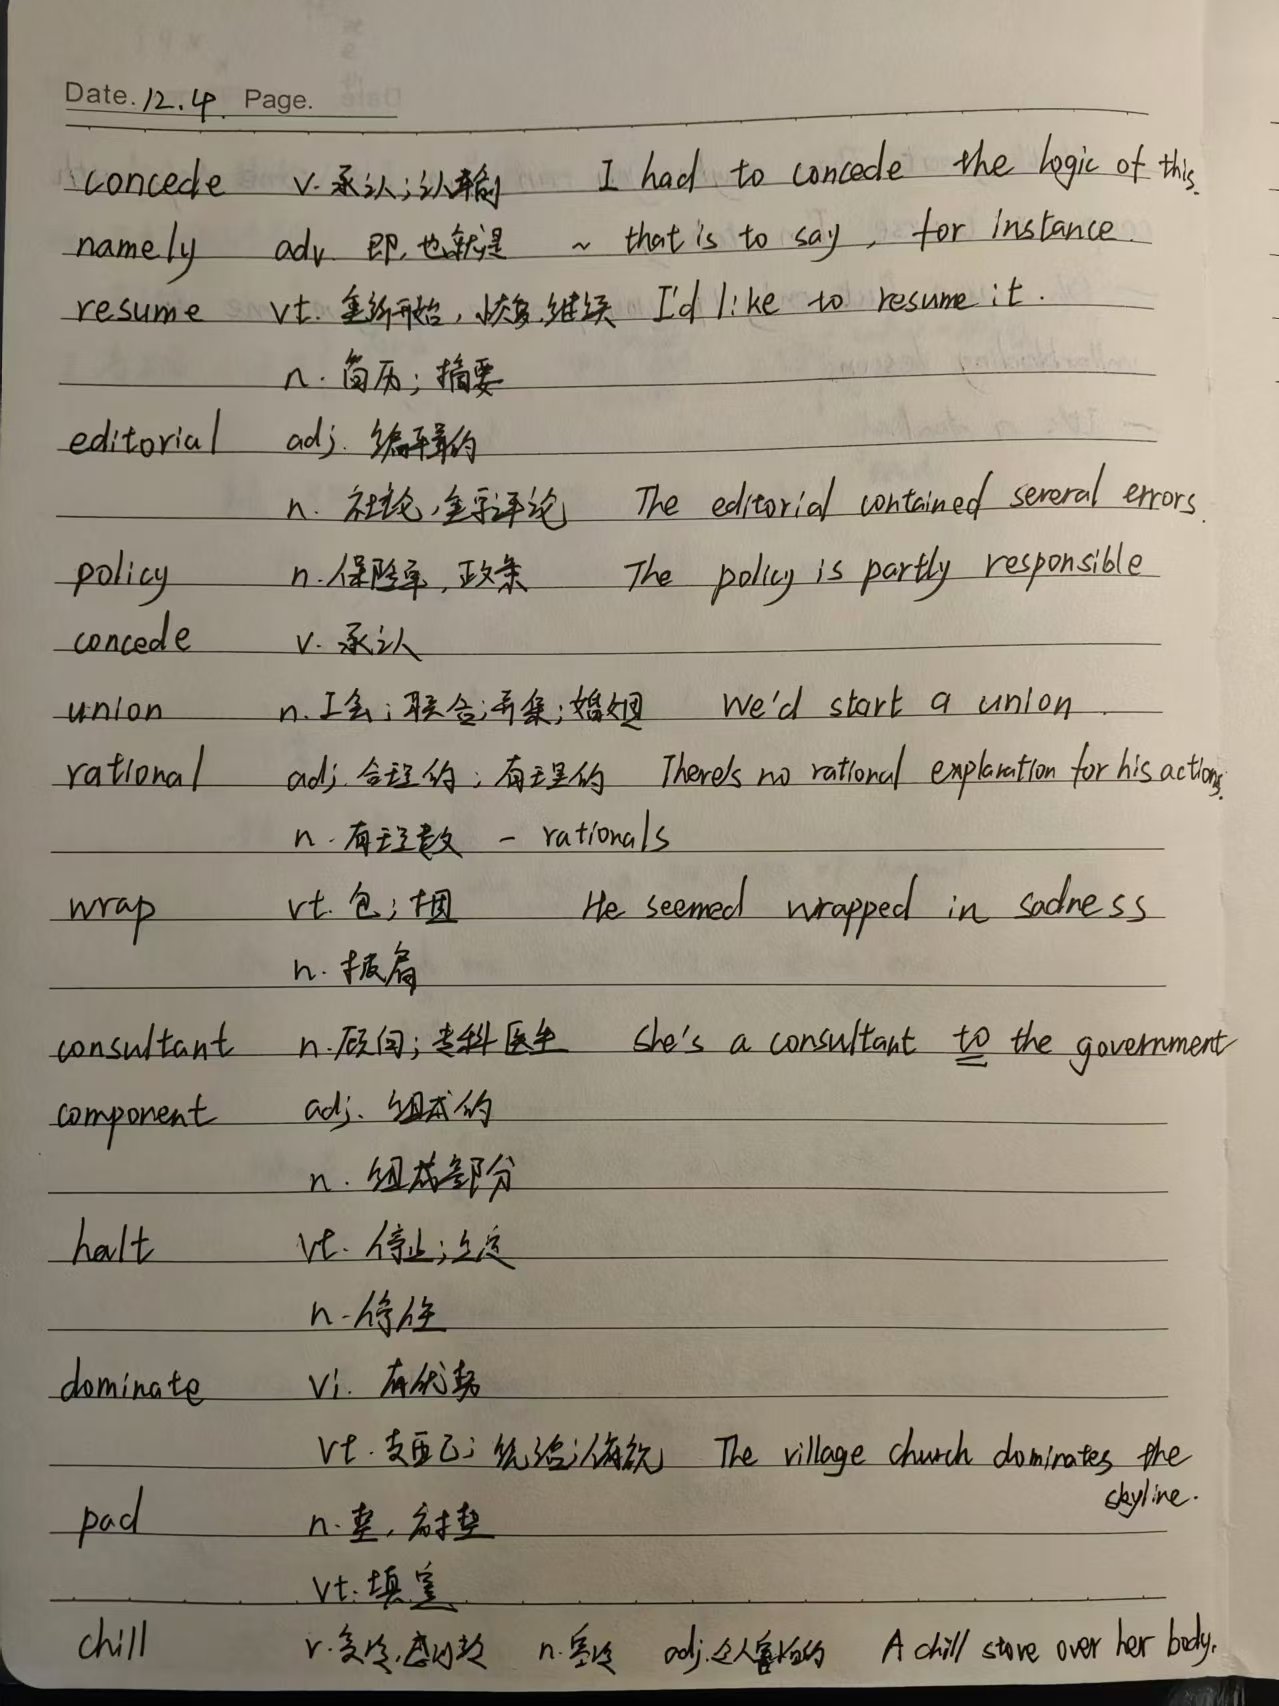 Date. 12.4. Page.
concede v. 承认;认输 I had to concede the logic of this.
namely adv. 即,也就是 ~ that is to say, for instance.
resume vt. 重新开始,恢复,继续 I'd like to resume it.
n. 简历;摘要
editorial adj. 编辑的
n. 社论,重要评论 The editorial contained several errors.
policy n. 保险单,政策 The policy is partly responsible
concede v. 承认
union n. 工会;联合;并集;婚姻 We'd start a union.
rational adj. 合理的;有理的 There's no rational explanation for his actions.
n. 有理数 - rationals
wrap vt. 包;捆 He seemed wrapped in sadness
n. 披肩
consultant n. 顾问;专科医生 She's a consultant to the government
component adj. 组成的
n. 组成部分
halt vt. 停止;立定
n. 停住
dominate vi. 有优势
vt. 支配;统治;俯瞰 The village church dominates the
skyline.
pad n. 垫,衬垫
vt. 填塞
chill v. 变冷,感到冷 n. 寒冷 adj. 令人寒冷的 A chill stove over her body.